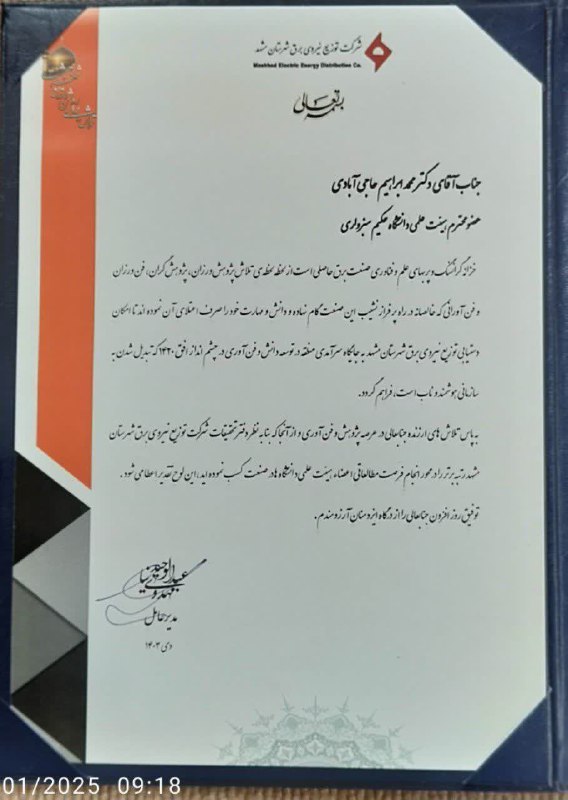 شرکت توزیع نیروی برق شهرستان مشهد
Mashhad Electric Energy Distribution Co.
بسمه تعالی
جناب آقای دکتر محمد ابراهیم حاجی آبادی
عضو محترم هیئت علمی دانشگاه حکیم سبزواری
خزانه گرانسنگ و پربهای علم و فناوری صنعت برق حاصلی است از لحظه لحظه‌ی تلاش پژوهش ورزان، پژوهش گران، فن ورزان
و فن آورانی که خالصانه در راه پر فراز نشیب این صنعت گام نهاده و دانش و مهارت خود را صرف اعتلای آن نموده اند تا امکان
دستیابی توزیع نیروی برق شهرستان مشهد به جایگاه سرآمدی منطقه در توسعه دانش و فن آوری در چشم انداز افق ۱۴۲۰ که تبدیل شدن به
سازمانی هوشمند و ناب است، فراهم گردد.
به پاس تلاش های ارزنده جنابعالی در عرصه پژوهش و فن آوری و از آنجا که بنا به نظر دفتر تحقیقات شرکت توزیع نیروی برق شهرستان
مشهد رتبه برتر را در محور انجام فرصت مطالعاتی اعضاء هیئت علمی دانشگاه ها در صنعت کسب نموده اید، این لوح تقدیر اعطا می شود.
توفیق روز افزون جنابعالی را از درگاه ایزد منان آرزومندم.
مدیرعامل
دی ۱۴۰۳
01/2025 09:18